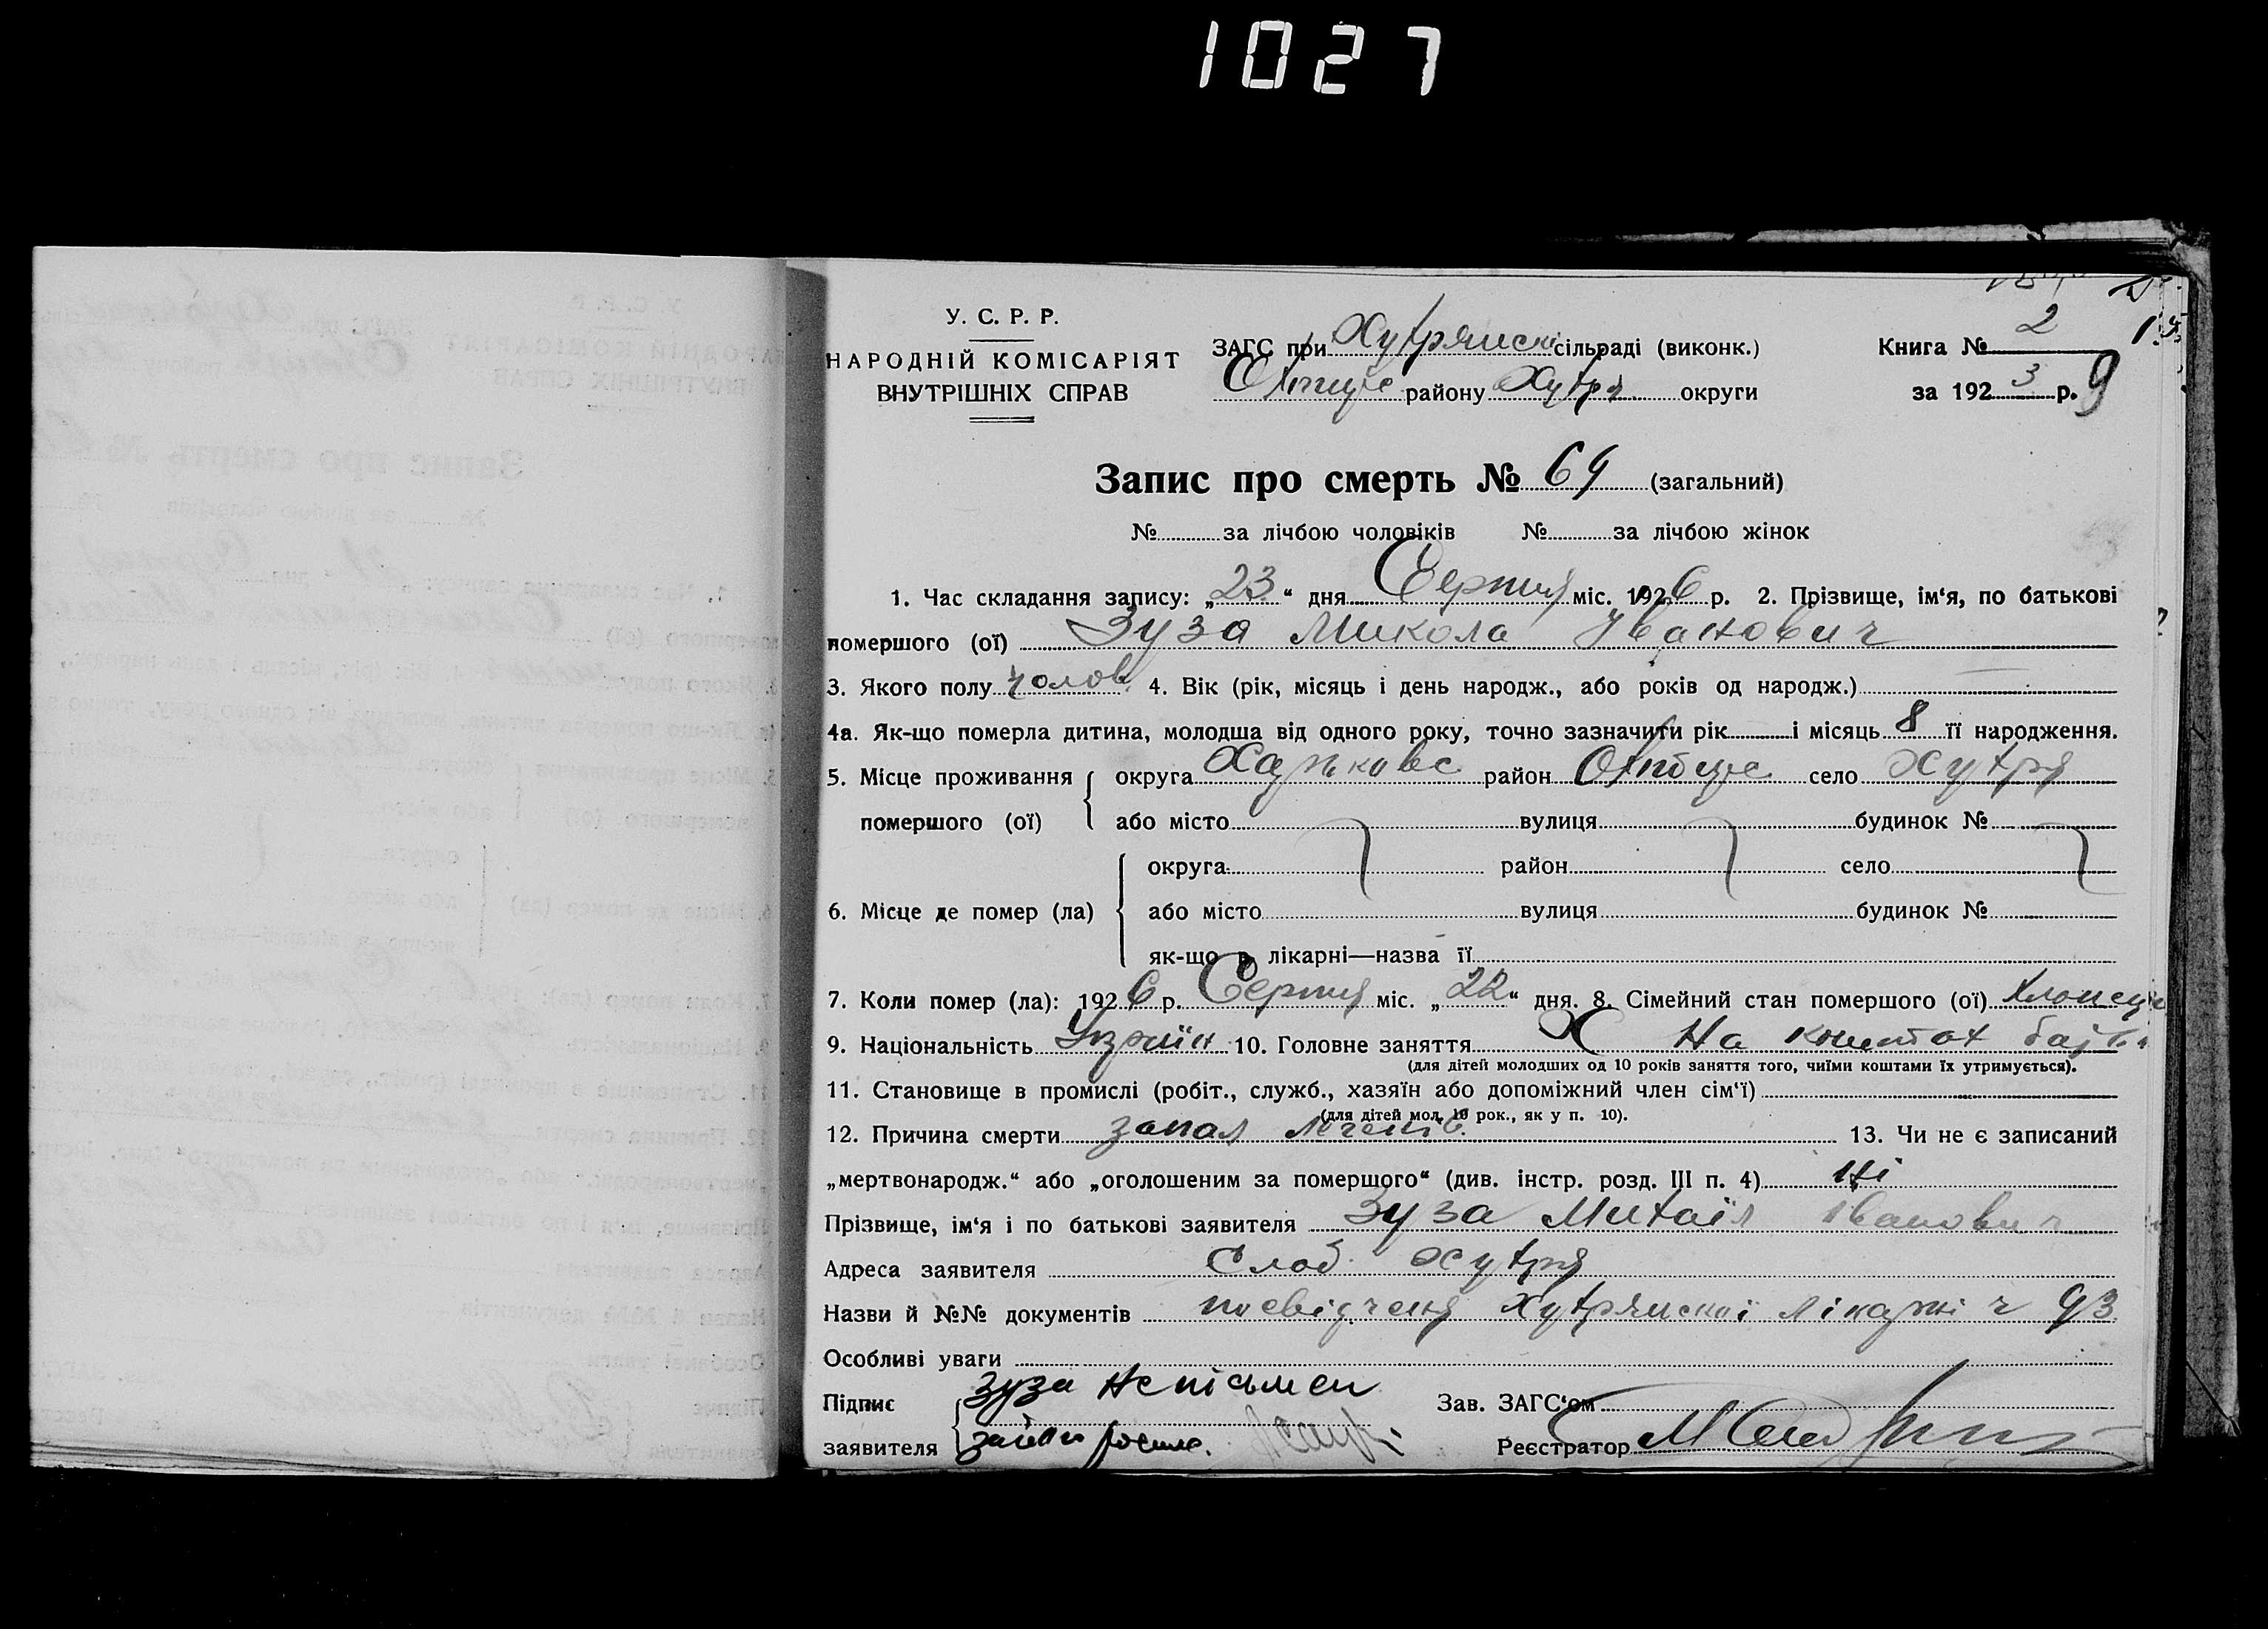 1027
У. С. Р. Р.
НАРОДНІЙ КОМІСАРІЯТ
ВНУТРІШНІХ СПРАВ
ЗАГС при сільраді (виконк.)
району округи
Книга № 2
за 192 3 р. 9
Запис про смерть № 69 (загальний)
№ за лічбою чоловіків № за лічбою жінок
1. Час складання запису: „23“ дня Серпня міс. 1926 р. 2. Прізвище, ім‘я, по батькові
помершого (ої) Зуза Микола Іванович
3. Якого полу чолов. 4. Вік (рік, місяць і день народж., або років од народж.)
4а. Як-що померла дитина, молодша від одного року, точно зазначити рік і місяць 8 її народження.
5. Місце проживання округа Харьковс район село
помершого (ої) або місто вулиця будинок №
округа район село
6. Місце де помер (ла) або місто вулиця будинок №
як-що в лікарні—назва її
7. Коли помер (ла): 1926 р. Серпня міс. „22“ дня. 8. Сімейний стан помершого (ої) хлопець
9. Національність 10. Головне заняття На коштах батька
(для дітей молодших од 10 років заняття того, чиїми коштами їх утримується).
11. Становище в промислі (робіт., служб., хазяїн або допоміжний член сім‘ї)
(для дітей мол. 10 рок., як у п. 10).
12. Причина смерти запал легенів 13. Чи не є записаний
„мертвонародж.“ або „оголошеним за померщого“ (див. інстр. розд. III п. 4) ні
Прізвище, ім‘я і по батькові заявителя Зуза Михаїл Іванович
Адреса заявителя Слоб.
Назви й №№ документів посвідченя лікарні ч 93
Особливі уваги
Підпис Зуза неписьмен Зав. ЗАГС‘ом
заявителя Реєстратор